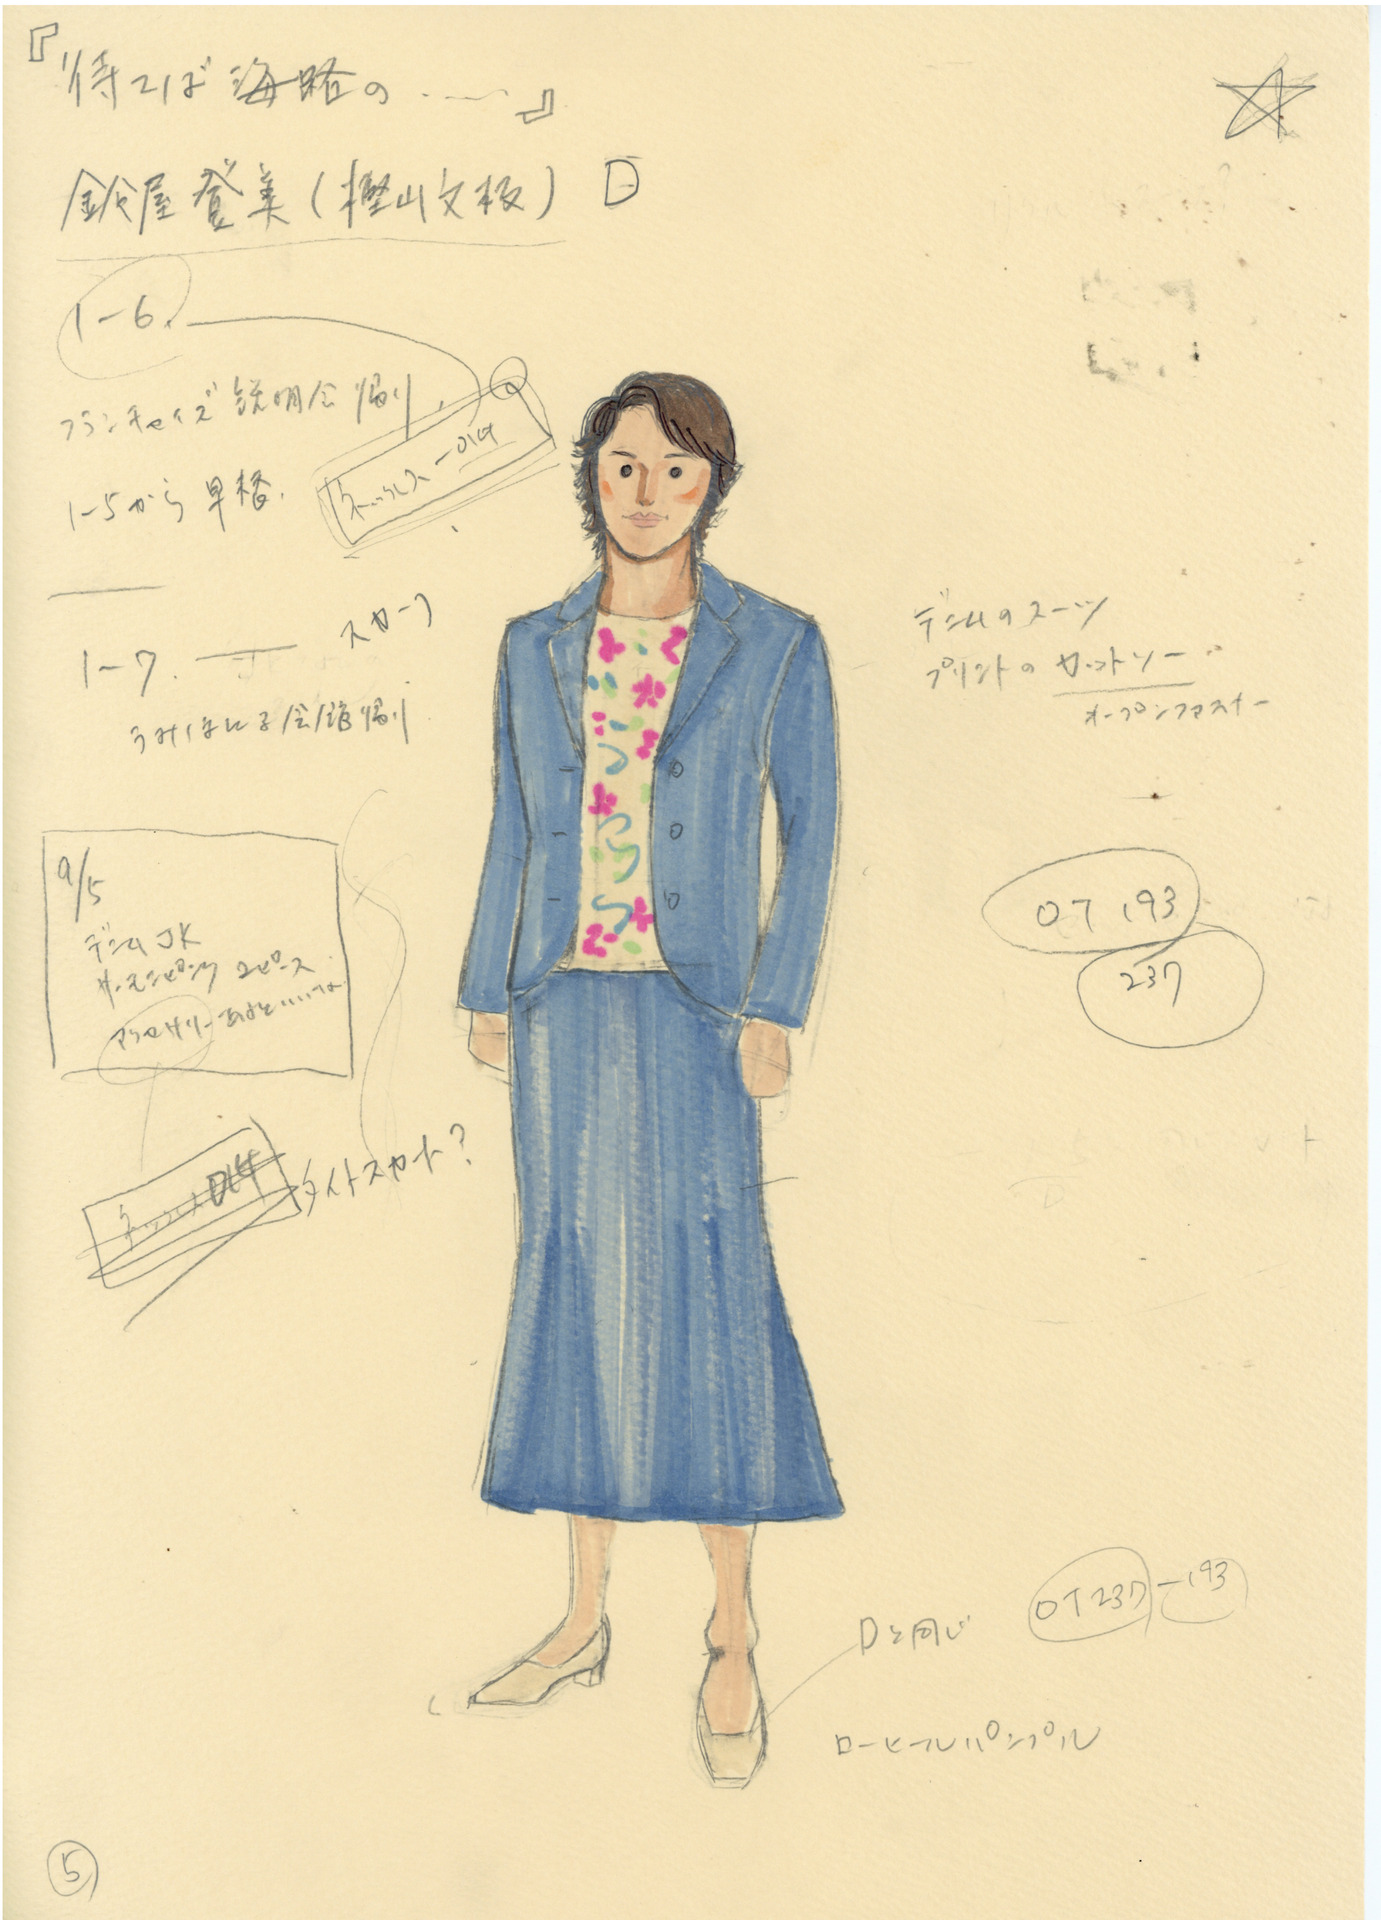 『待てば海路の・・・』
鈴屋登美(樫山文枝) D
1-6.
フランチャイズ説明会帰り
1-5から早替.
ネックレス-D14
1-7. スカーフ
うみほたる会館帰り
デニムのスーツ
プリントのカットソー
オープンファスナー
9/5
デニムJK
ワンピース
アクセサリーあるといいな
OT 193
237
ネックレスD14
タイトスカート?
Dと同じ
OT237-193
ローヒールパンプル
⑤